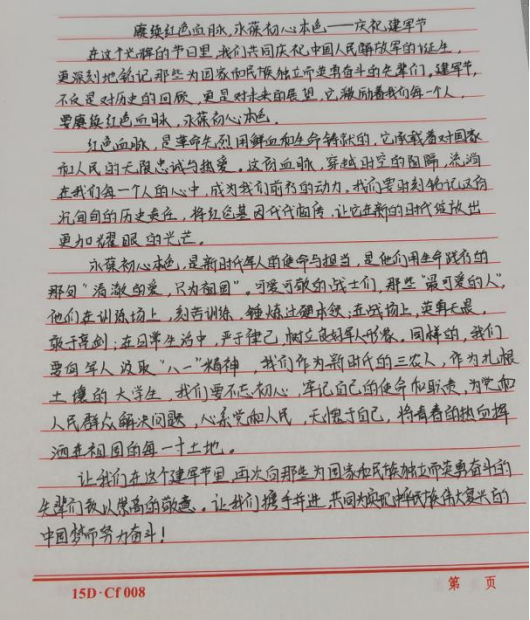 赓续红色血脉,永葆初心本色——庆祝建军节
在这个光辉的节日里,我们共同庆祝中国人民解放军的诞生,
更深刻地铭记那些为国家和民族独立而英勇奋斗的先辈们。建军节,
不仅是对历史的回顾,更是对未来的展望,它激励着我们每一个人,
要赓续红色血脉,永葆初心本色。
红色血脉,是革命先烈用鲜血和生命铸就的,它承载着对国家
和人民的无限忠诚与热爱。这份血脉,穿越时空的阻隔,流淌
在我们每一个人的心中,成为我们前行的动力。我们要时刻铭记这份
沉甸甸的历史责任,将红色基因代代相传,让它在新的时代绽放出
更加耀眼的光芒。
永葆初心本色,是新时代军人的使命与担当,是他们用生命践行的
那句“清澈的爱,只为祖国”。可爱可敬的战士们,那些“最可爱的人”,
他们在训练场上,刻苦训练,锤炼过硬本领;在战场上,英勇无畏,
敢于亮剑;在日常生活中,严于律己,树立良好军人形象。同样的,我们
要向军人汲取“八一”精神,我们作为新时代的三农人,作为扎根
土壤的大学生,我们要不忘初心,牢记自己的使命和职责,为党和
人民群众解决问题,心系党和人民,无愧于自己,将青春的热血挥
洒在祖国的每一寸土地。
让我们在这个建军节里,再次向那些为国家和民族独立而英勇奋斗的
先辈们致以崇高的敬意。让我们携手并进,共同为实现中华民族伟大复兴的
中国梦而努力奋斗!
15D·Cf 008
第 页